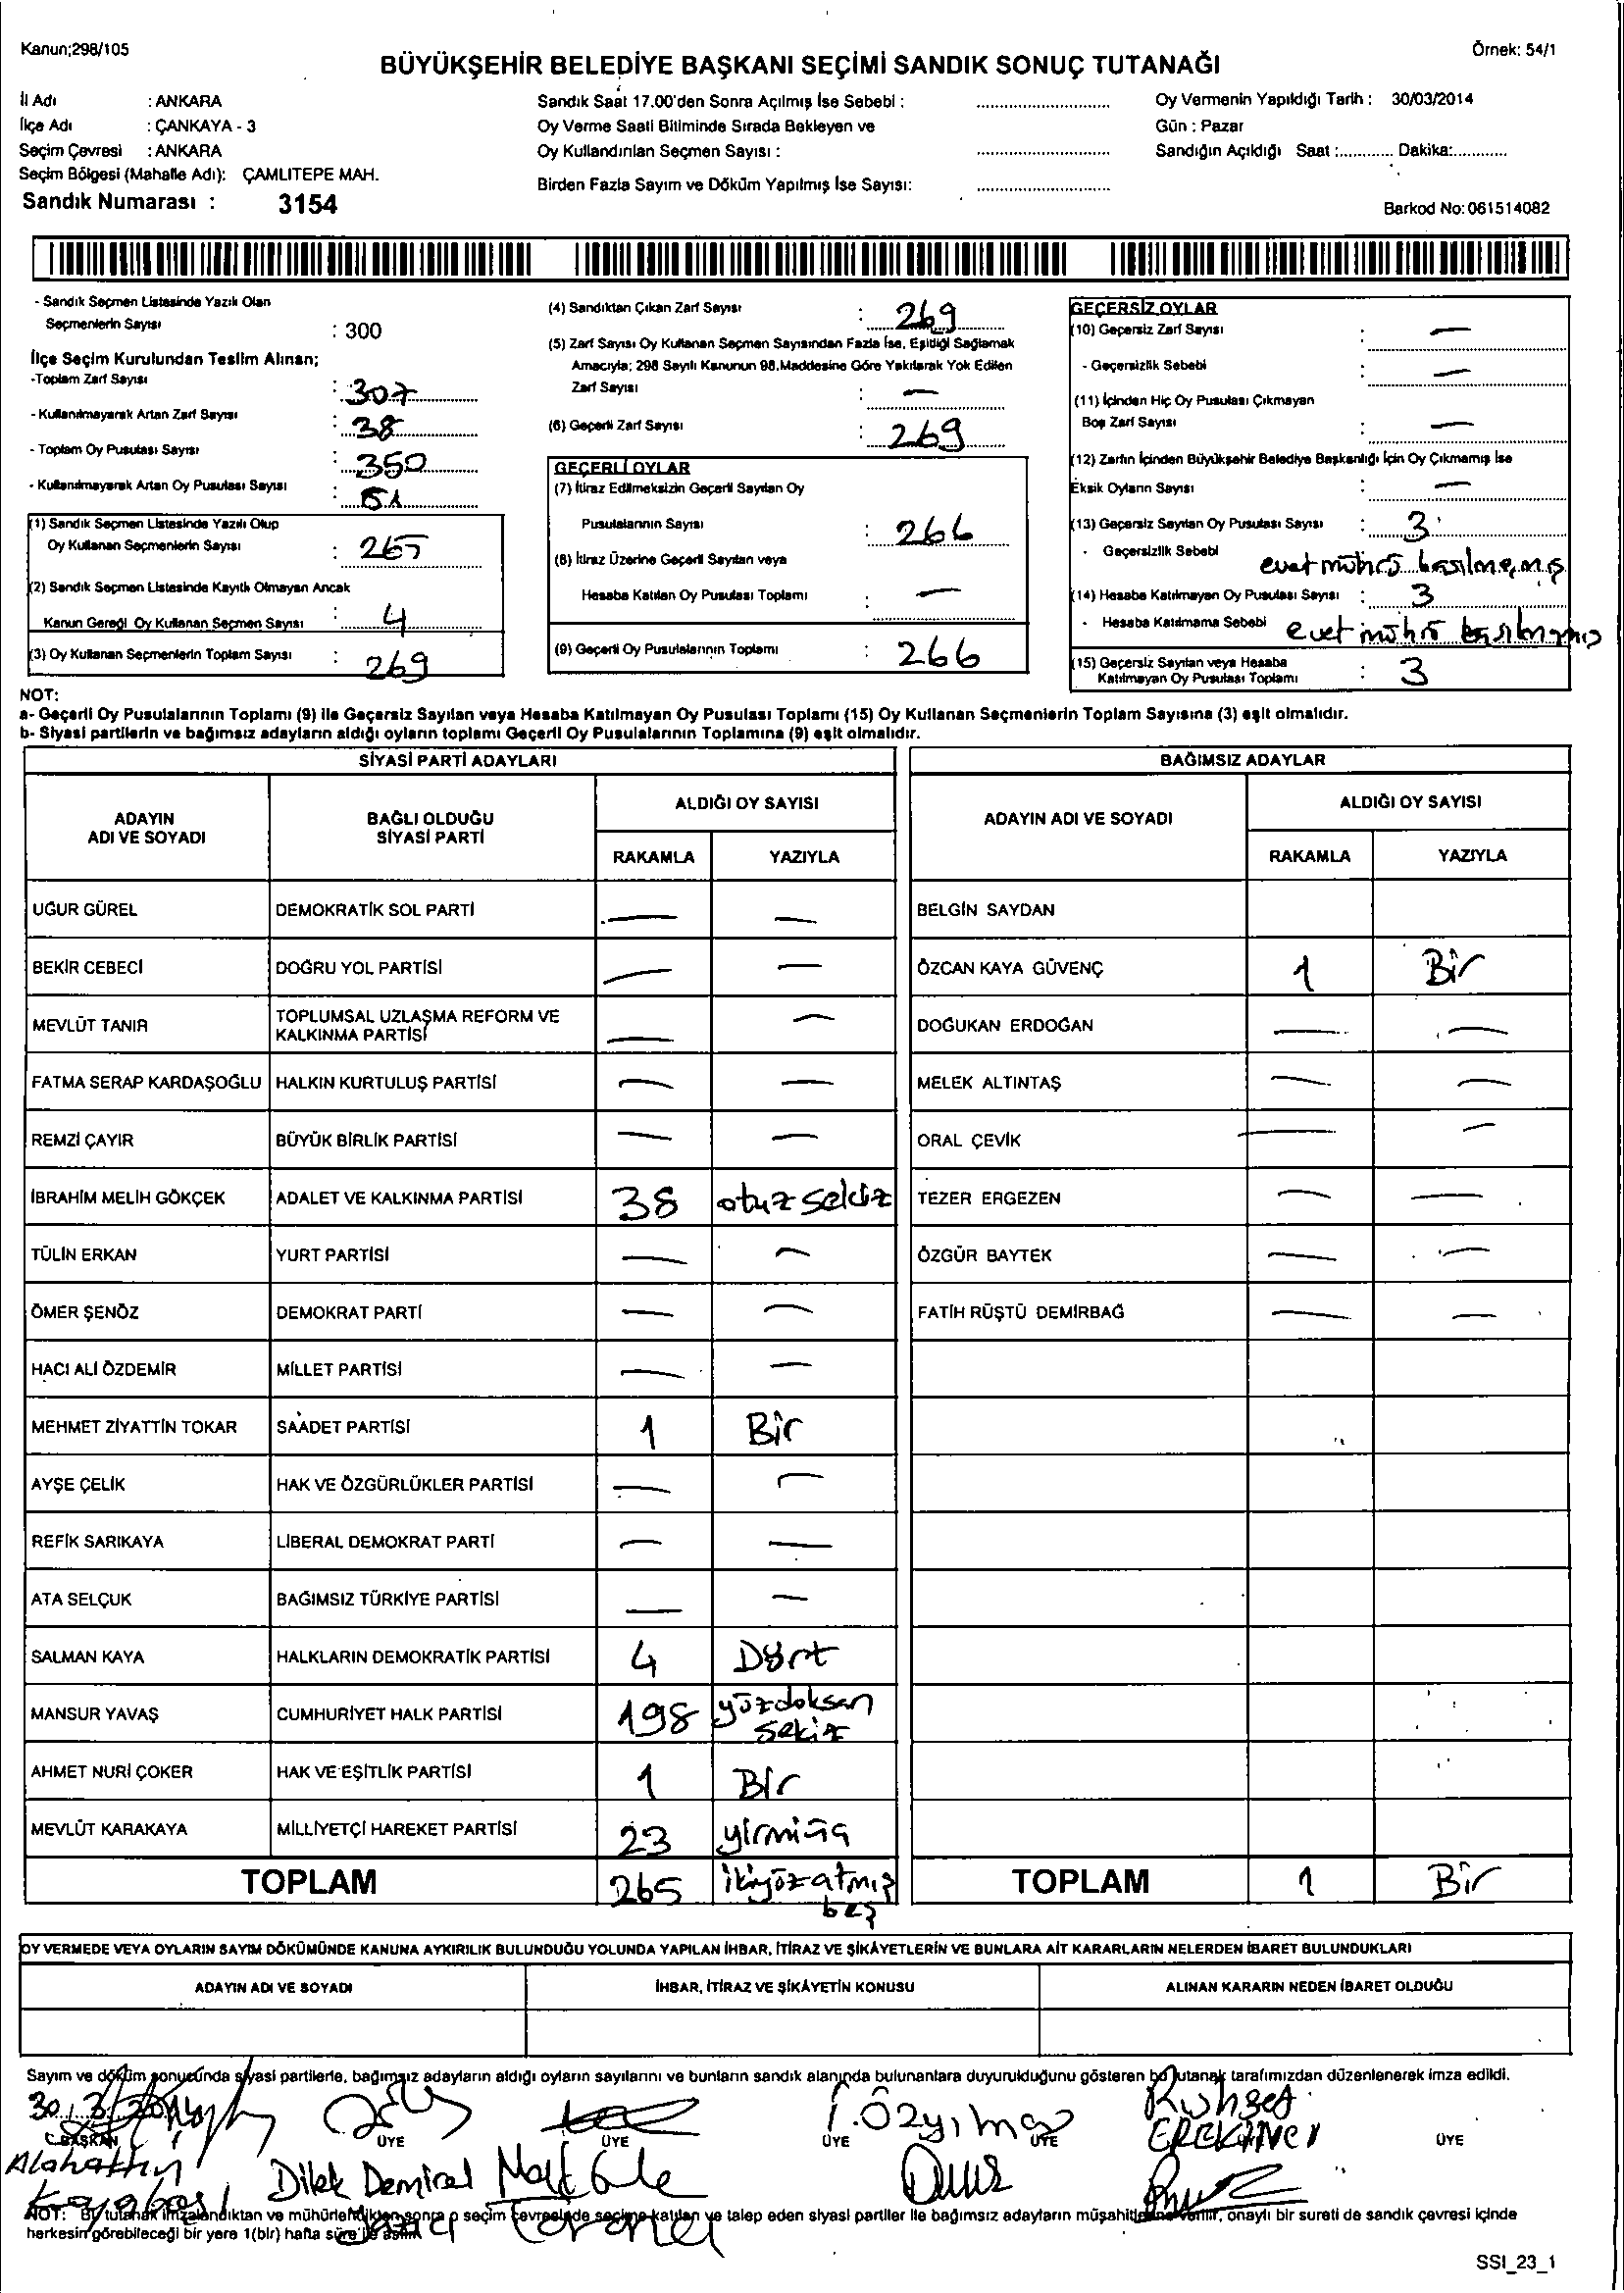 Kanun;298/105
Örnek: 54/1
BÜYÜKŞEHİR BELEDİYE BAŞKANI SEÇİMİ SANDIK SONUÇ TUTANAĞI
İl Adı : ANKARA
İlçe Adı : ÇANKAYA - 3
Seçim Çevresi : ANKARA
Seçim Bölgesi (Mahalle Adı): ÇAMLITEPE MAH.
Sandık Numarası : 3154
Sandık Saat 17.00'den Sonra Açılmış İse Sebebi :
Oy Verme Saati Bitiminde Sırada Bekleyen ve
Oy Kullandırılan Seçmen Sayısı :
Birden Fazla Sayım ve Döküm Yapılmış İse Sayısı:
Oy Vermenin Yapıldığı Tarih : 30/03/2014
Gün : Pazar
Sandığın Açıldığı Saat :............ Dakika:............
Barkod No: 061514082
- Sandık Seçmen Listesinde Yazılı Olan
Seçmenlerin Sayısı : 300
İlçe Seçim Kurulundan Teslim Alınan;
-Toplam Zarf Sayısı : 307
- Kullanılmayarak Artan Zarf Sayısı : 38
- Toplam Oy Pusulası Sayısı : 350
- Kullanılmayarak Artan Oy Pusulası Sayısı : 51
(1) Sandık Seçmen Listesinde Yazılı Olup
Oy Kullanan Seçmenlerin Sayısı : 265
(2) Sandık Seçmen Listesinde Kayıtlı Olmayan Ancak
Kanun Gereği Oy Kullanan Seçmen Sayısı : 4
(3) Oy Kullanan Seçmenlerin Toplam Sayısı : 269
(4) Sandıktan Çıkan Zarf Sayısı : 269
(5) Zarf Sayısı Oy Kullanan Seçmen Sayısından Fazla İse, Eşitliği Sağlamak
Amacıyla; 298 Sayılı Kanunun 98.Maddesine Göre Yakılarak Yok Edilen
Zarf Sayısı : —
(6) Geçerli Zarf Sayısı : 269
GEÇERLİ OYLAR
(7) İtiraz Edilmeksizin Geçerli Sayılan Oy
Pusulalarının Sayısı : 266
(8) İtiraz Üzerine Geçerli Sayılan veya
Hesaba Katılan Oy Pusulası Toplamı : —
(9) Geçerli Oy Pusulalarının Toplamı : 266
GEÇERSİZ OYLAR
(10) Geçersiz Zarf Sayısı : —
- Geçersizlik Sebebi : —
(11) İçinden Hiç Oy Pusulası Çıkmayan
Boş Zarf Sayısı : —
(12) Zarfın İçinden Büyükşehir Belediye Başkanlığı İçin Oy Çıkmamış İse
Eksik Oyların Sayısı : —
(13) Geçersiz Sayılan Oy Pusulası Sayısı : 3
- Geçersizlik Sebebi evet mührü basılmamış
(14) Hesaba Katılmayan Oy Pusulası Sayısı : 3
- Hesaba Katılmama Sebebi evet mührü basılmamış
(15) Geçersiz Sayılan veya Hesaba
Katılmayan Oy Pusulası Toplamı : 3
NOT:
a- Geçerli Oy Pusulalarının Toplamı (9) ile Geçersiz Sayılan veya Hesaba Katılmayan Oy Pusulası Toplamı (15) Oy Kullanan Seçmenlerin Toplam Sayısına (3) eşit olmalıdır.
b- Siyasi partilerin ve bağımsız adayların aldığı oyların toplamı Geçerli Oy Pusulalarının Toplamına (9) eşit olmalıdır.
SİYASİ PARTİ ADAYLARI
ADAYIN ADI VE SOYADI BAĞLI OLDUĞU SİYASİ PARTİ ALDIĞI OY SAYISI
RAKAMLA YAZIYLA
UĞUR GÜREL DEMOKRATİK SOL PARTİ — —
BEKİR CEBECİ DOĞRU YOL PARTİSİ — —
MEVLÜT TANIR TOPLUMSAL UZLAŞMA REFORM VE KALKINMA PARTİSİ — —
FATMA SERAP KARDAŞOĞLU HALKIN KURTULUŞ PARTİSİ — —
REMZİ ÇAYIR BÜYÜK BİRLİK PARTİSİ — —
İBRAHİM MELİH GÖKÇEK ADALET VE KALKINMA PARTİSİ 38 otuz sekiz
TÜLİN ERKAN YURT PARTİSİ — —
ÖMER ŞENÖZ DEMOKRAT PARTİ — —
HACI ALİ ÖZDEMİR MİLLET PARTİSİ — —
MEHMET ZİYATTİN TOKAR SAADET PARTİSİ 1 Bir
AYŞE ÇELİK HAK VE ÖZGÜRLÜKLER PARTİSİ — —
REFİK SARIKAYA LİBERAL DEMOKRAT PARTİ — —
ATA SELÇUK BAĞIMSIZ TÜRKİYE PARTİSİ — —
SALMAN KAYA HALKLARIN DEMOKRATİK PARTİSİ 4 Dört
MANSUR YAVAŞ CUMHURİYET HALK PARTİSİ 198 yüzdoksan sekiz
AHMET NURİ ÇOKER HAK VE EŞİTLİK PARTİSİ 1 Bir
MEVLÜT KARAKAYA MİLLİYETÇİ HAREKET PARTİSİ 23 yirmiüç
TOPLAM 265 ikiyüzatmış beş
BAĞIMSIZ ADAYLAR
ADAYIN ADI VE SOYADI ALDIĞI OY SAYISI
RAKAMLA YAZIYLA
BELGİN SAYDAN
ÖZCAN KAYA GÜVENÇ 1 Bir
DOĞUKAN ERDOĞAN — —
MELEK ALTINTAŞ — —
ORAL ÇEVİK — —
TEZER ERGEZEN — —
ÖZGÜR BAYTEK — —
FATİH RÜŞTÜ DEMİRBAĞ — —
TOPLAM 1 Bir
OY VERMEDE VEYA OYLARIN SAYIM DÖKÜMÜNDE KANUNA AYKIRILIK BULUNDUĞU YOLUNDA YAPILAN İHBAR, İTİRAZ VE ŞİKÂYETLERİN VE BUNLARA AİT KARARLARIN NELERDEN İBARET BULUNDUKLARI
ADAYIN ADI VE SOYADI İHBAR, İTİRAZ VE ŞİKÂYETİN KONUSU ALINAN KARARIN NEDEN İBARET OLDUĞU
Sayım ve döküm sonucunda siyasi partilerle, bağımsız adayların aldığı oyların sayılarını ve bunların sandık alanında bulunanlara duyurulduğunu gösteren bu tutanak tarafımızdan düzenlenerek imza edildi.
30.3.2014 İ.Özyılmaz Ruhset
BAŞKAN ÜYE ÜYE ÜYE ÜYE ÜYE
Dilek Demirel
NOT: Bu tutanak imzalandıktan ve mühürlendikten sonra o seçim çevresinde seçime katılan ve talep eden siyasi partiler ile bağımsız adayların müşahitlerine verilir, onaylı bir sureti de sandık çevresi içinde
herkesin görebileceği bir yere 1(bir) hafta süre ile asılır
SSI_23_1